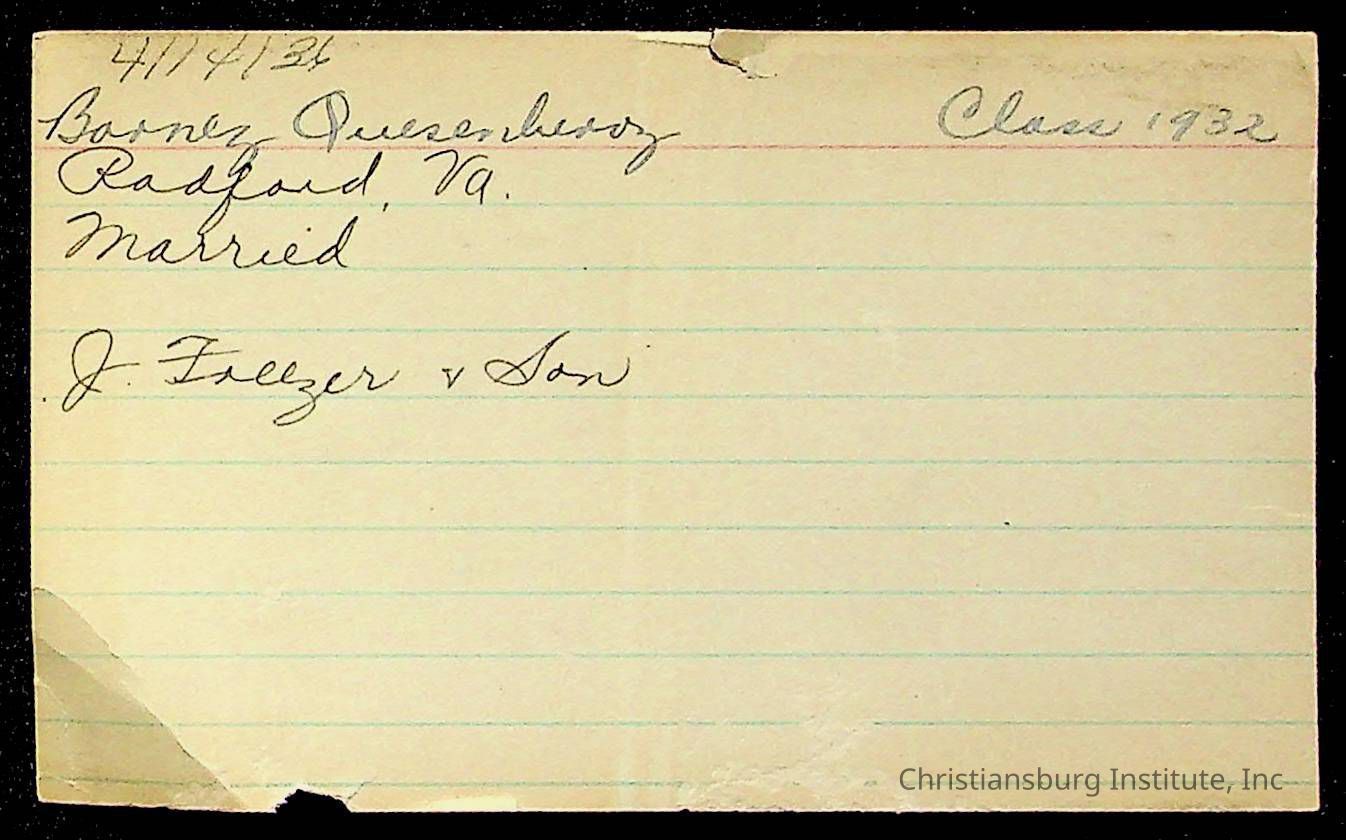 4/14/36
Barney Quesenberry Class 1932
Radford, Va.
Married
J. Freezer & Son
Christiansburg Institute, Inc